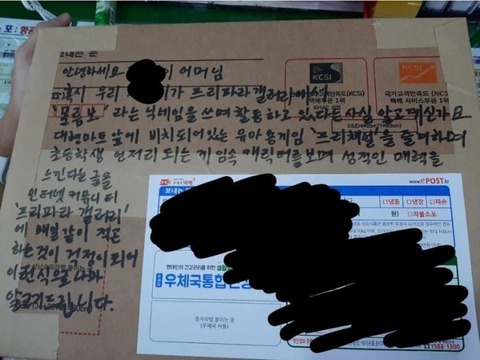 보내는 분
안녕하세요 이 어머님
혹시 우리 가 프리파라갤러리에서
"물류보" 라는 닉네임을 쓰며 활동하고 있다는 사실 알고계신가요
대형마트 앞에 비치되어있는 유아용게임 "프리채널"을 즐겨하며
초등학생 언저리 되는 게임속 캐릭터를 보며 성적인 매력을
느낀다는 글을
인터넷 커뮤니터
'프리파라 갤러리'
에 매일같이 적곤
하는것이 걱정이되어
이런식으로나마
알려드립니다.
KCSI
KCSI
택배서비스부문 1위
국가고객만족도(NCSI)
택배 서비스부문 1위
POST.kr
보내는
냉동 냉장 파손
원) 착불소포
우체국통합
종지파벨 붙이는 곳
(우체국 사용)
1588-1300